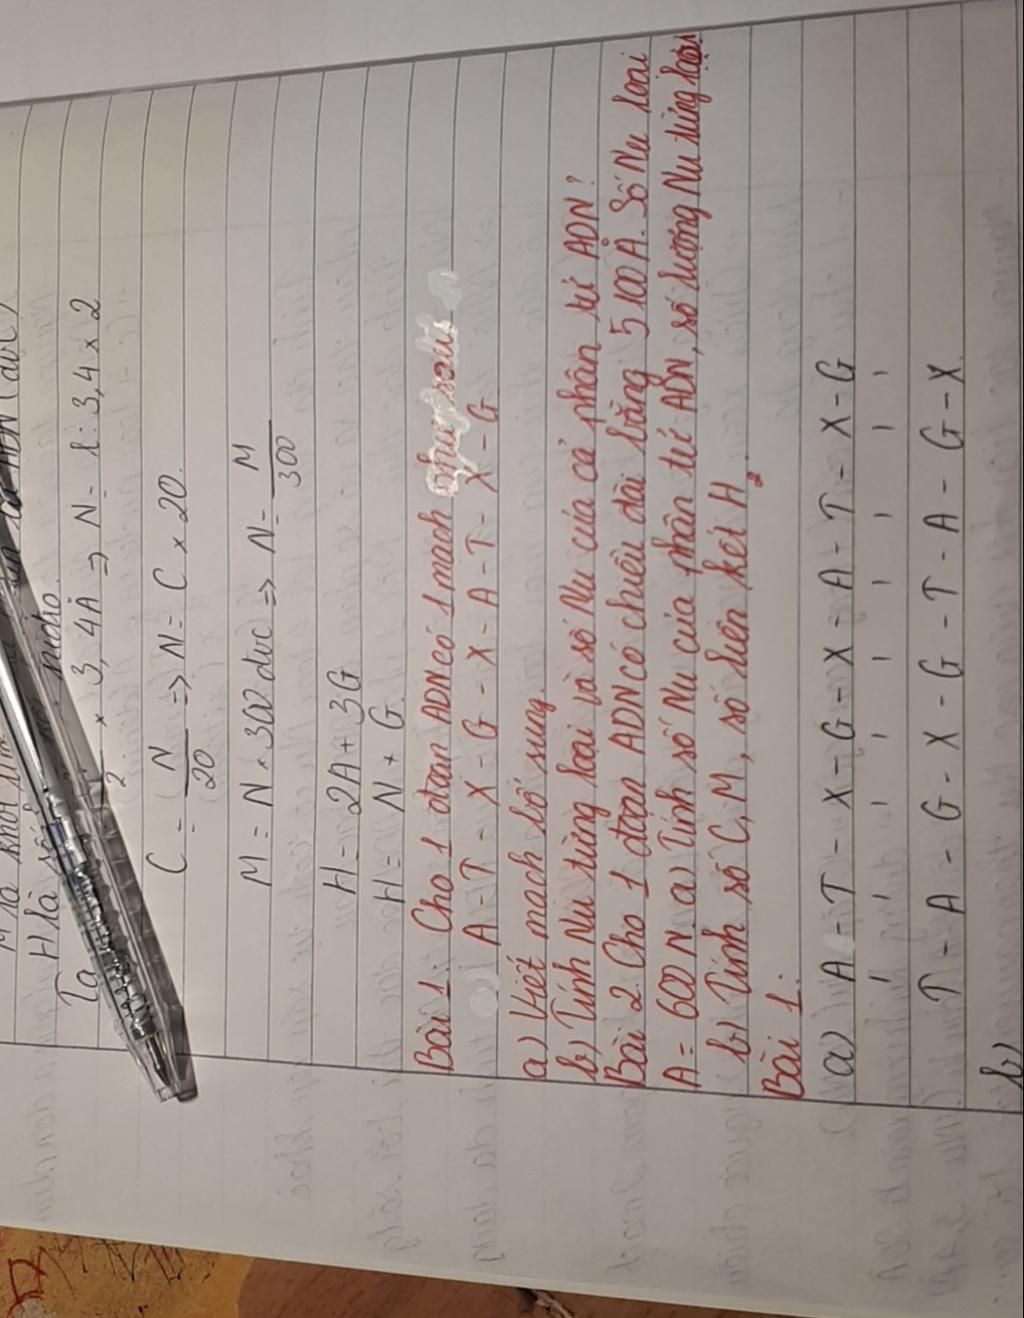 M là khối
H là số
Ta 2 × 3,4Å => N = l : 3,4 × 2
C = N/20 => N = C × 20.
M = N × 300 đvc => N = M/300
H = 2A + 3G
H = N + G.
Bài 1. Cho 1 đoạn ADN có 1 mạch như sau
A - T - X - G - X - A - T - X - G
a) Viết mạch bổ sung.
b) Tính Nu từng loại và số Nu của cả phân tử ADN?
Bài 2. Cho 1 đoạn ADN có chiều dài bằng 5100Å. Số Nu loại
A = 600 N. a) Tính số Nu của phân tử ADN, số lượng Nu từng loại
b) Tính số C, M, số liên kết H₂.
Bài 1.
a) A - T - X - G - X - A - T - X - G
T - A - G - X - G - T - A - G - X
b)